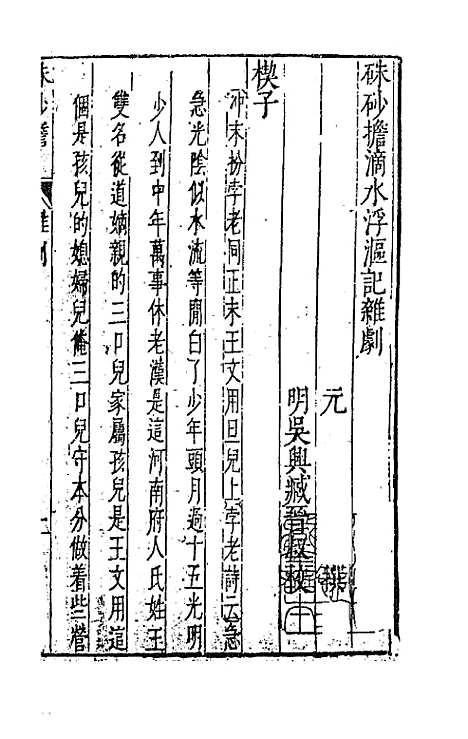 硃砂擔滴水浮漚記雜劇
元 撰
明吳興臧晉叔校
楔子
沖末扮孛老同正末王文用旦兒上孛老詩云急
急光陰似水流等閒白了少年頭月過十五光明
少人到中年萬事休老漢是這河南府人氏姓王
雙名從道嫡親的三口兒家屬孩兒是王文用這
個是孩兒的媳婦兒俺三口兒守本分做着些營
硃砂擔
雜劇
一